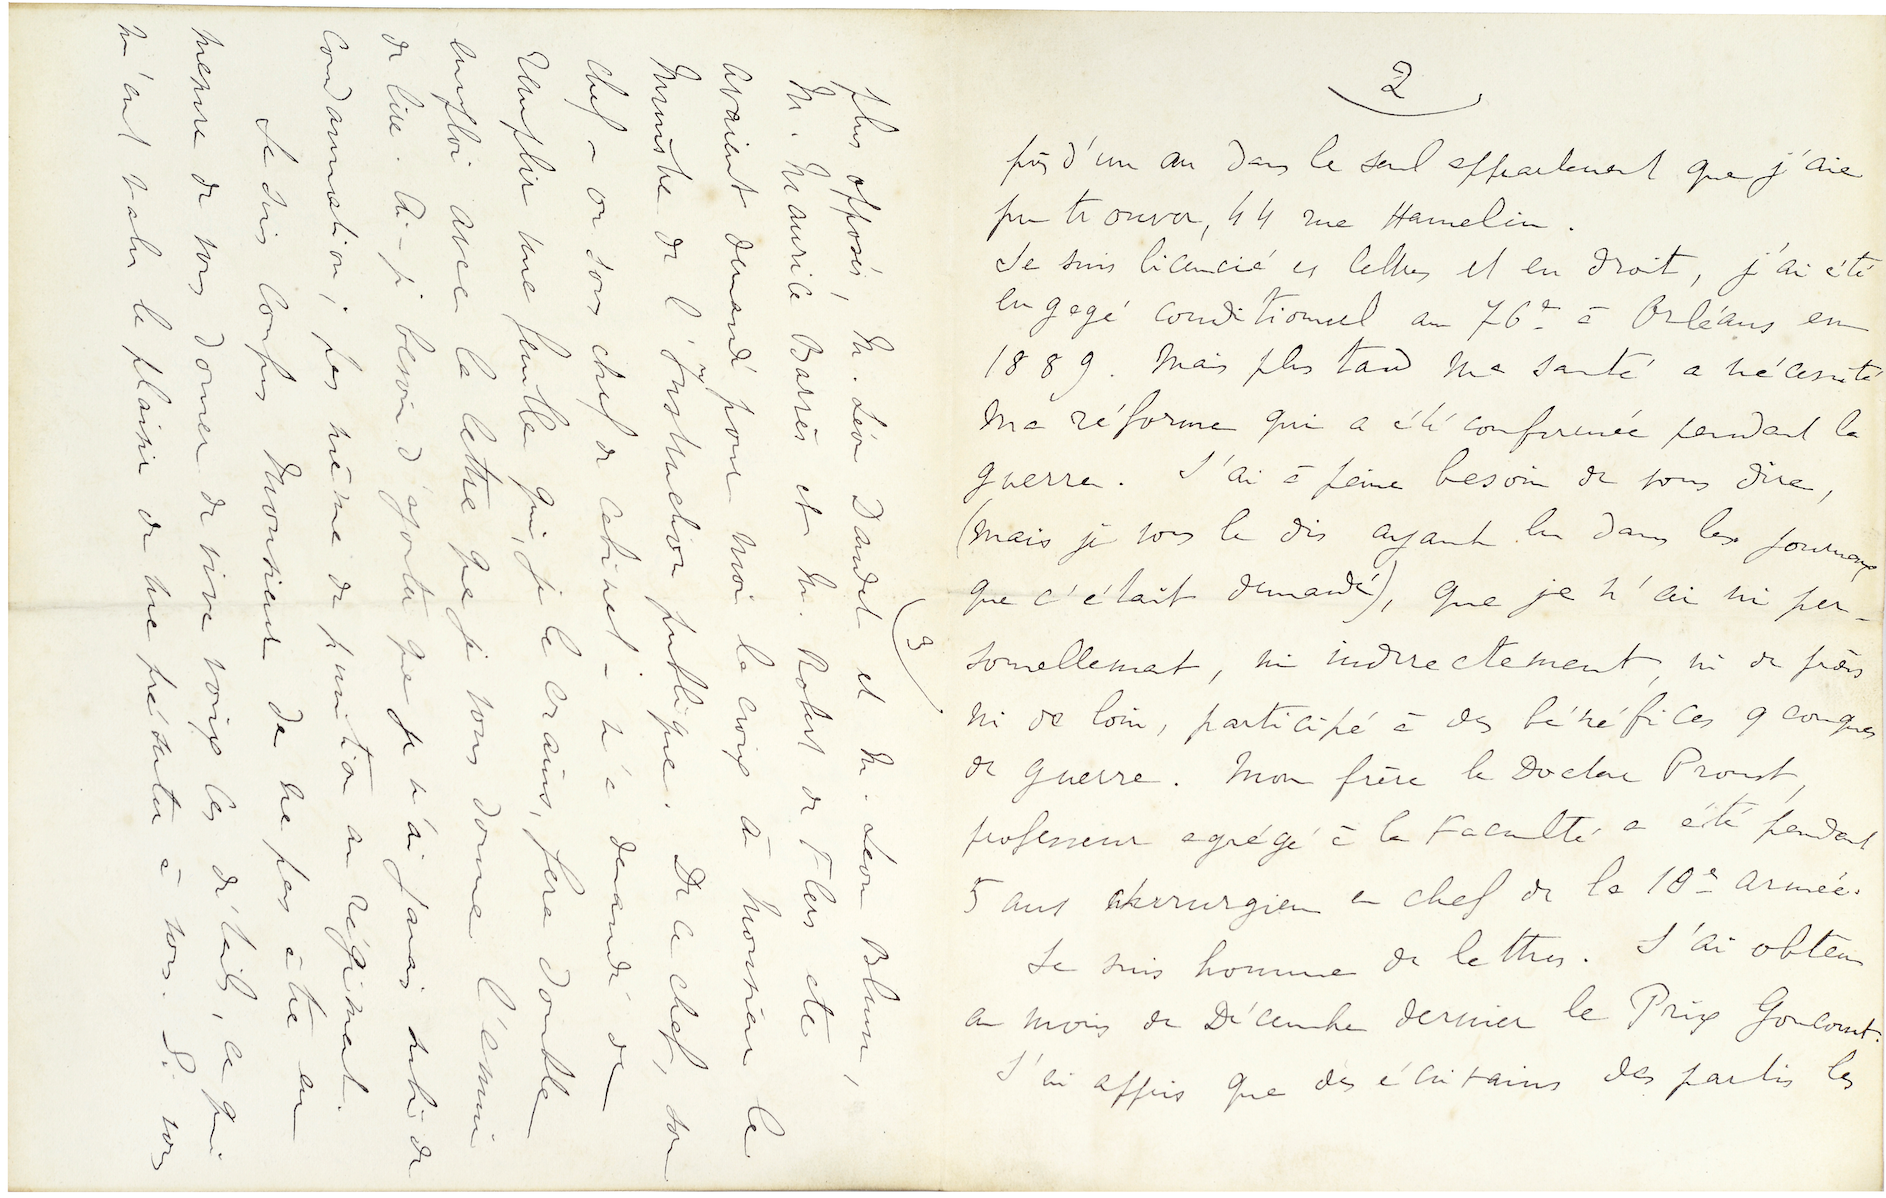 2
près d'un an dans le seul appartement que j'aie
pu trouver, 44 rue Hamelin.
Je suis licencié es lettres et en droit, j'ai été
engagé conditionnel au 76e à Orléans en
1889. Mais plus tard ma santé a nécessité
ma réforme qui a été confirmée pendant la
guerre. J'ai à peine besoin de vous dire,
(mais je vous le dis ayant lu dans les journaux
que c'était demandé), que je n'ai ni per-
sonellemat, ni indirectement, ni de près
ni de loin, participé à des bénéfices qconques
de guerre. Mon frère le Docteur Proust,
professeur agrégé à la Faculté a été pendant
5 ans chirurgien en chef de la 10e armée.
Je suis homme de lettres. J'ai obtenu
au mois de Décembre dernier le Prix Goncourt.
J'ai appris que des écrivains des partis les
3
plus opposés, M. Léon Daudet et M. Léon Blum,
M. Maurice Barrès et M. Robert de Flers etc
avaient demandé pour moi la croix à Monsieur le
Ministre de l'Instruction publique. De ce chef, son
chef - ou sous chef de cabinet - m'a demandé de
remplir une feuille qui, je le crains, fera double
emploi avec la lettre que je vous donne l'ennui
de lire. Ai-je besoin d'ajouter que je n'ai jamais subi de
condamnation; pas même de punition au régiment.
Je suis confus Monsieur de ne pas être en
mesure de vous donner de vive voix ces détails, ce qui
m'eut valu le plaisir de me présenter à vous. Si vous